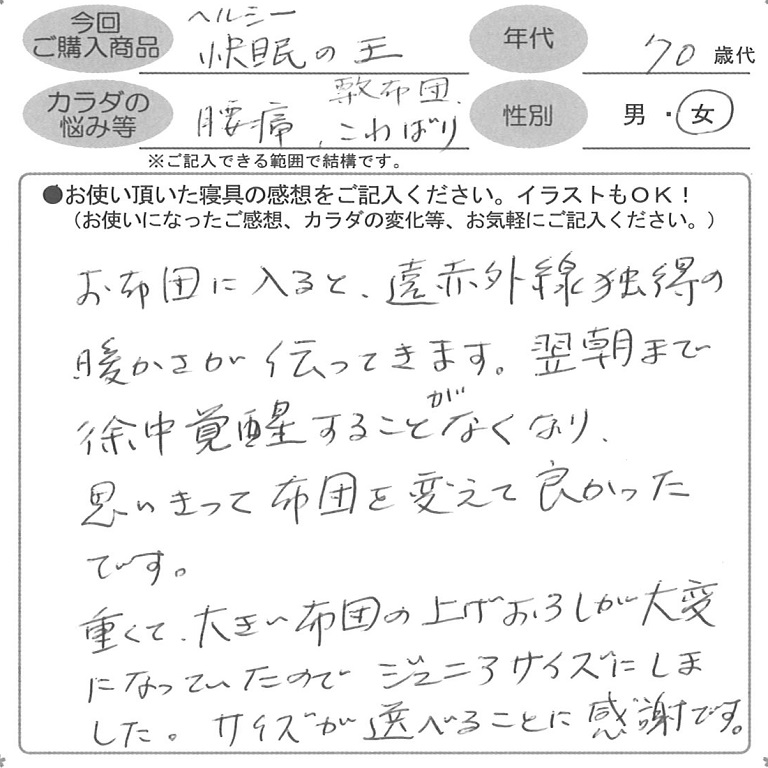 今回
ご購入商品
ヘルシー
快眠の王
敷布団、
年代
70 歳代
カラダの
悩み等
腰痛、こわばり
性別
男・女
※ご記入できる範囲で結構です。
●お使い頂いた寝具の感想をご記入ください。イラストもOK!
(お使いになったご感想、カラダの変化等、お気軽にご記入ください。)
お布団に入ると、遠赤外線独得の
暖かさが伝ってきます。翌朝まで
途中覚醒することがなくなり、
思いきって布団を変えて良かった
です。
重くて、大きい布団の上げおろしが大変
になっていたのでジュニアサイズにしま
した。サイズが選べることに感謝です。